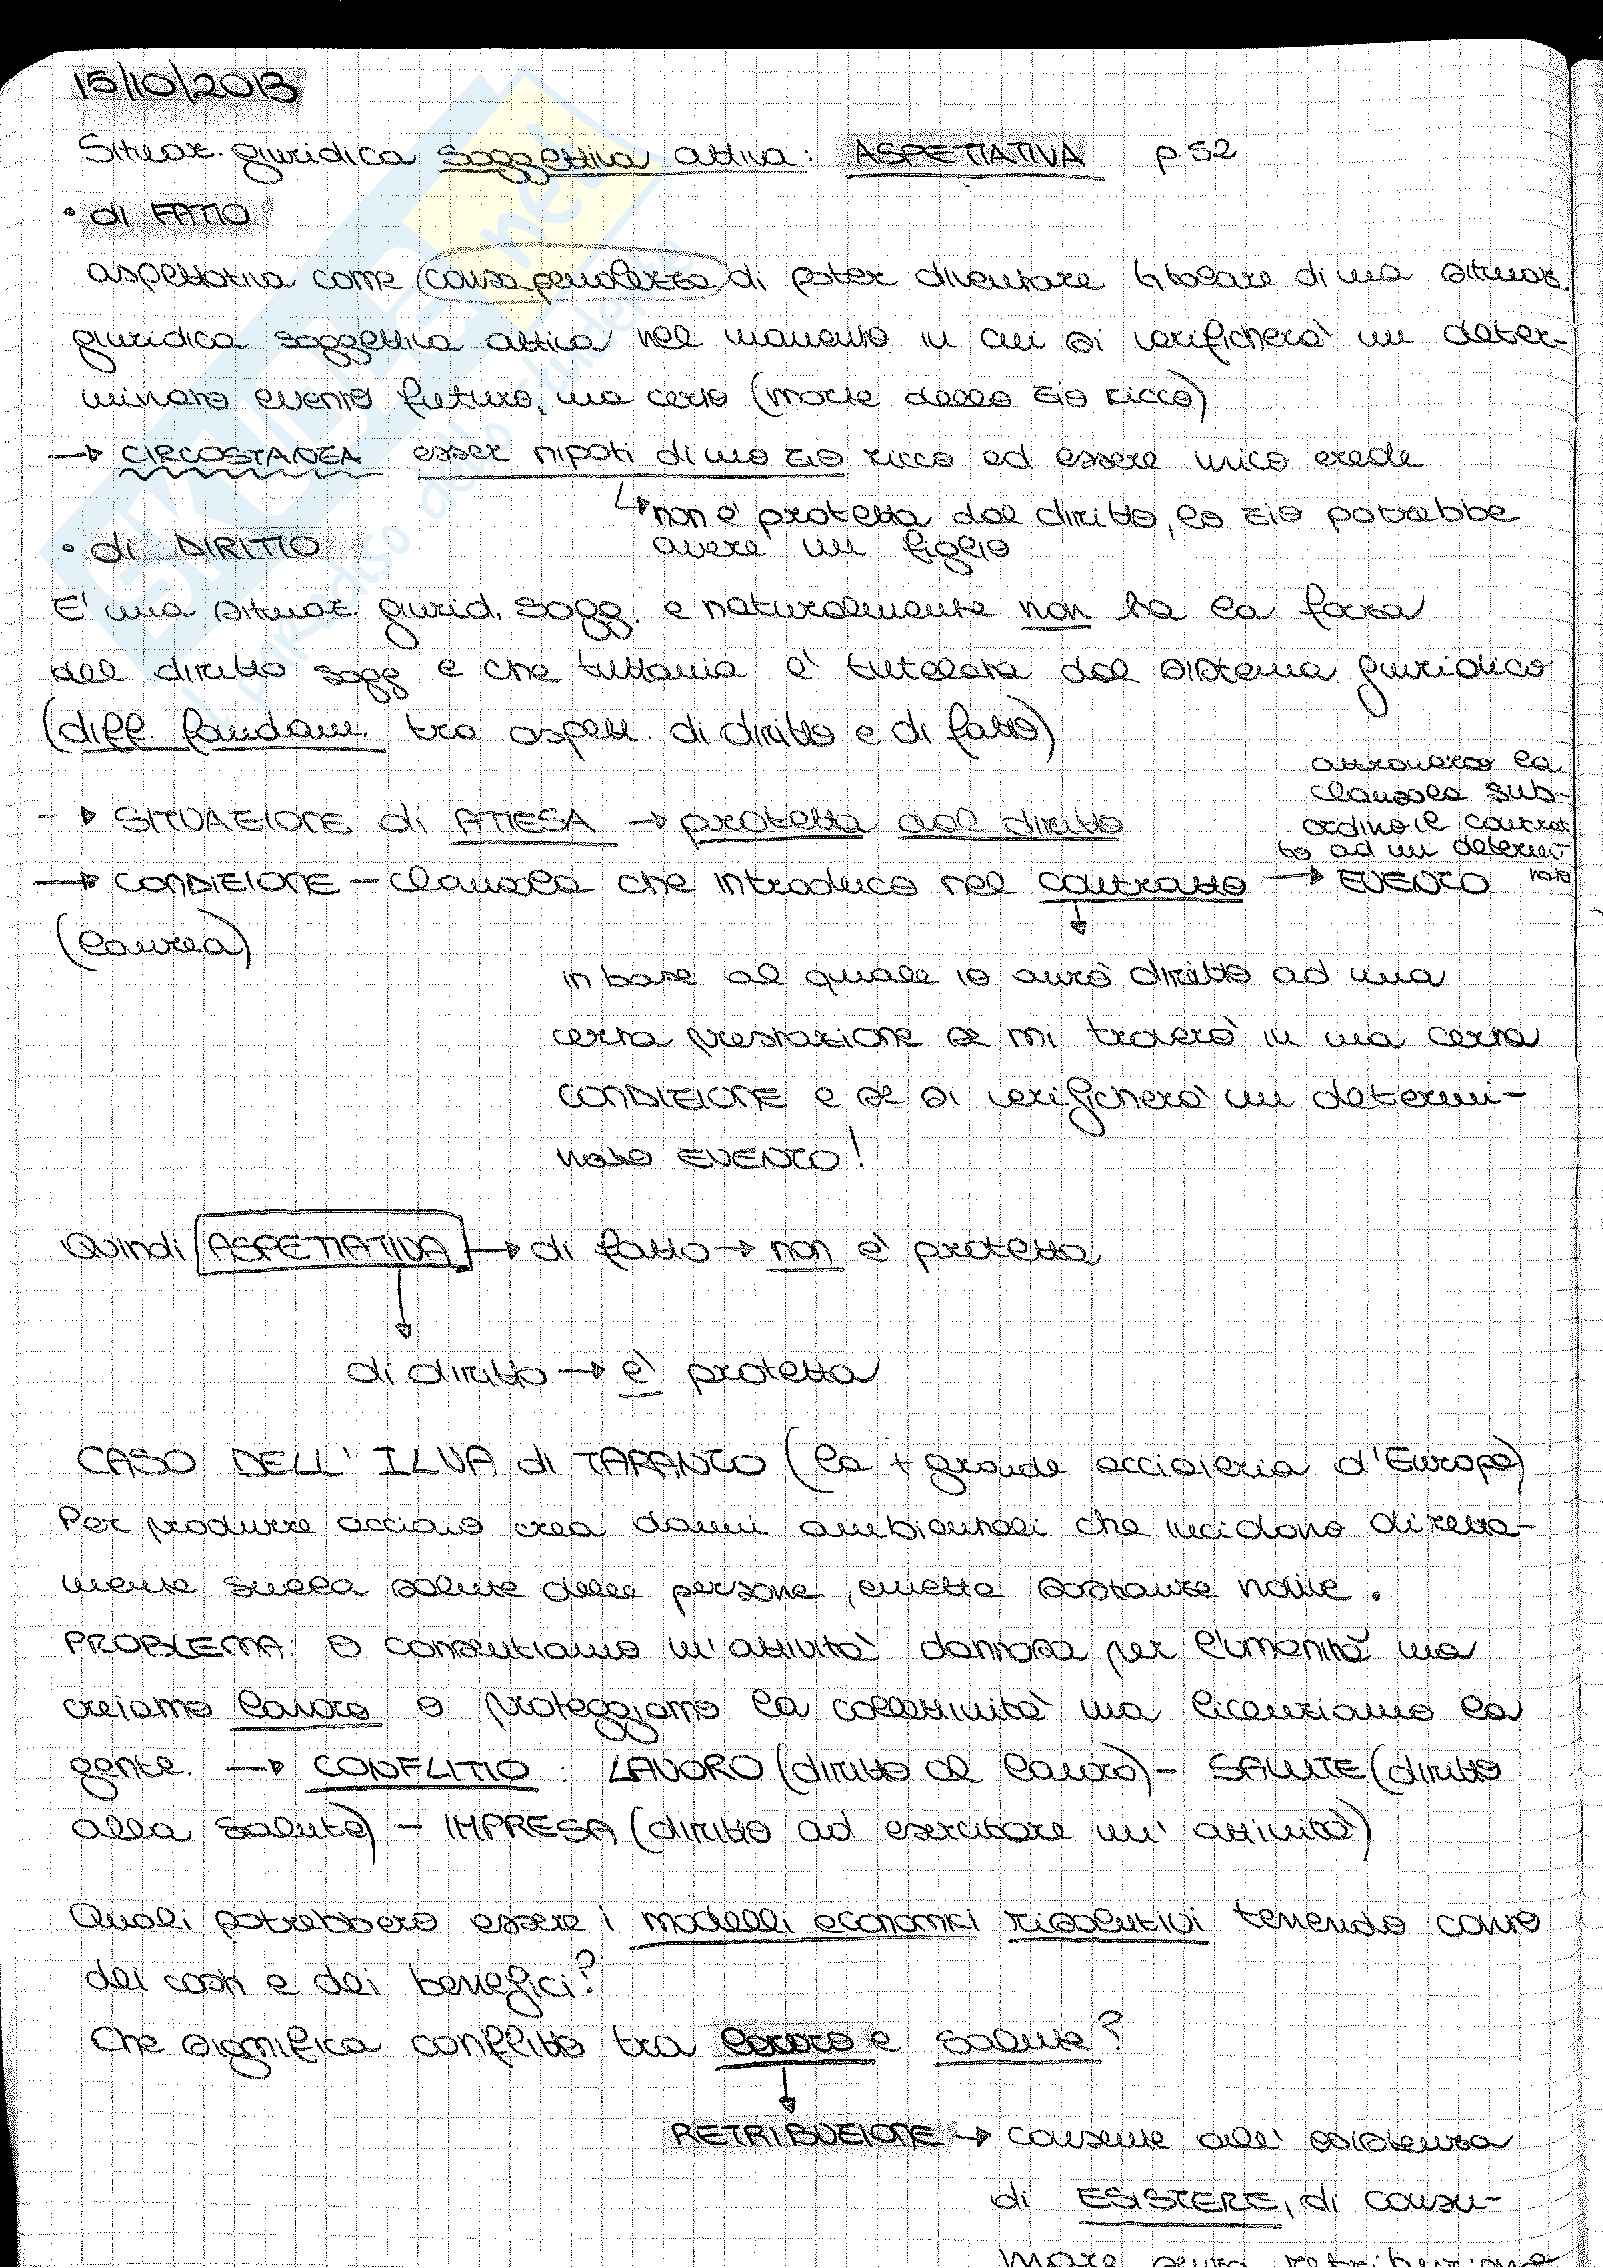 15/10/2013
Situaz. giuridica soggettiva attiva: ASPETTATIVA p 52
• di FATTO
aspettativa come di poter diventare titolare di una situaz.
giuridica soggettiva attiva nel momento in cui si verificherà un deter-
minato evento futuro, ma certo (morte dello zio ricco)
→ CIRCOSTANZA esser nipoti di uno zio ricco ed essere unico erede
↳ non è protetta dal diritto, lo zio potrebbe
avere un figlio
• di DIRITTO
E' una situaz. giurid. sogg. e naturalmente non ha la forza
del diritto sogg e che tuttavia è tutelata dal sistema giuridico
(diff. fondam. tra aspett. di diritto e di fatto)
→ SITUAZIONE di ATTESA → protetta dal diritto
attraverso la
clausola sub-
ordino il contrat
to ad un determi-
nato
→ CONDIZIONE - clausola che introduco nel contratto → EVENTO
(laurea)
in base al quale io avrò diritto ad una
certa prestazione se mi troverò in una certa
CONDIZIONE e se si verificherà un determi-
nato EVENTO!
Quindi ASPETTATIVA → di fatto → non è protetta
di diritto → è protetta
CASO DELL' ILVA di TARANTO (la + grande acciaieria d'Europa)
Per produrre acciaio crea danni ambientali che incidono diretta-
mente sulla salute delle persone, emette sostanze nocive.
PROBLEMA: O consentiamo un'attività dannosa per l'umanità ma
creiamo lavoro o proteggiamo la collettività ma licenziamo la
gente. → CONFLITTO: LAVORO (diritto al lavoro) - SALUTE (diritto
alla salute) - IMPRESA (diritto ad esercitare un' attività)
Quali potrebbero essere i modelli economici risolutivi tenendo conto
dei costi e dei benefici?
Che significa conflitto tra lavoro e salute?
RETRIBUZIONE → consente all' esistenza
di ESISTERE, di consu-
mare